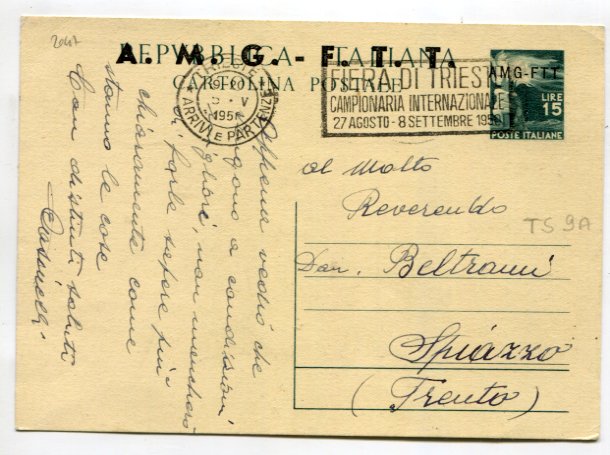 2047
A. M. G. - F. T. T.
REPVBBLICA ITALIANA
CARTOLINA POSTALE
TRIESTE
ARRIVI E PARTENZE
FIERA DI TRIESTE
CAMPIONARIA INTERNAZIONALE
27 AGOSTO - 8 SETTEMBRE 1950
AMG-FTT
LIRE
15
POSTE ITALIANE
al Molto
Reverendo
Don. Beltrami
Spiazzo
(Trento)
TS 9A
Appena vedrò che
sono a condizioni
migliori, non mancherò
di farle sapere più
chiaramente come
stanno le cose
Con distinti saluti